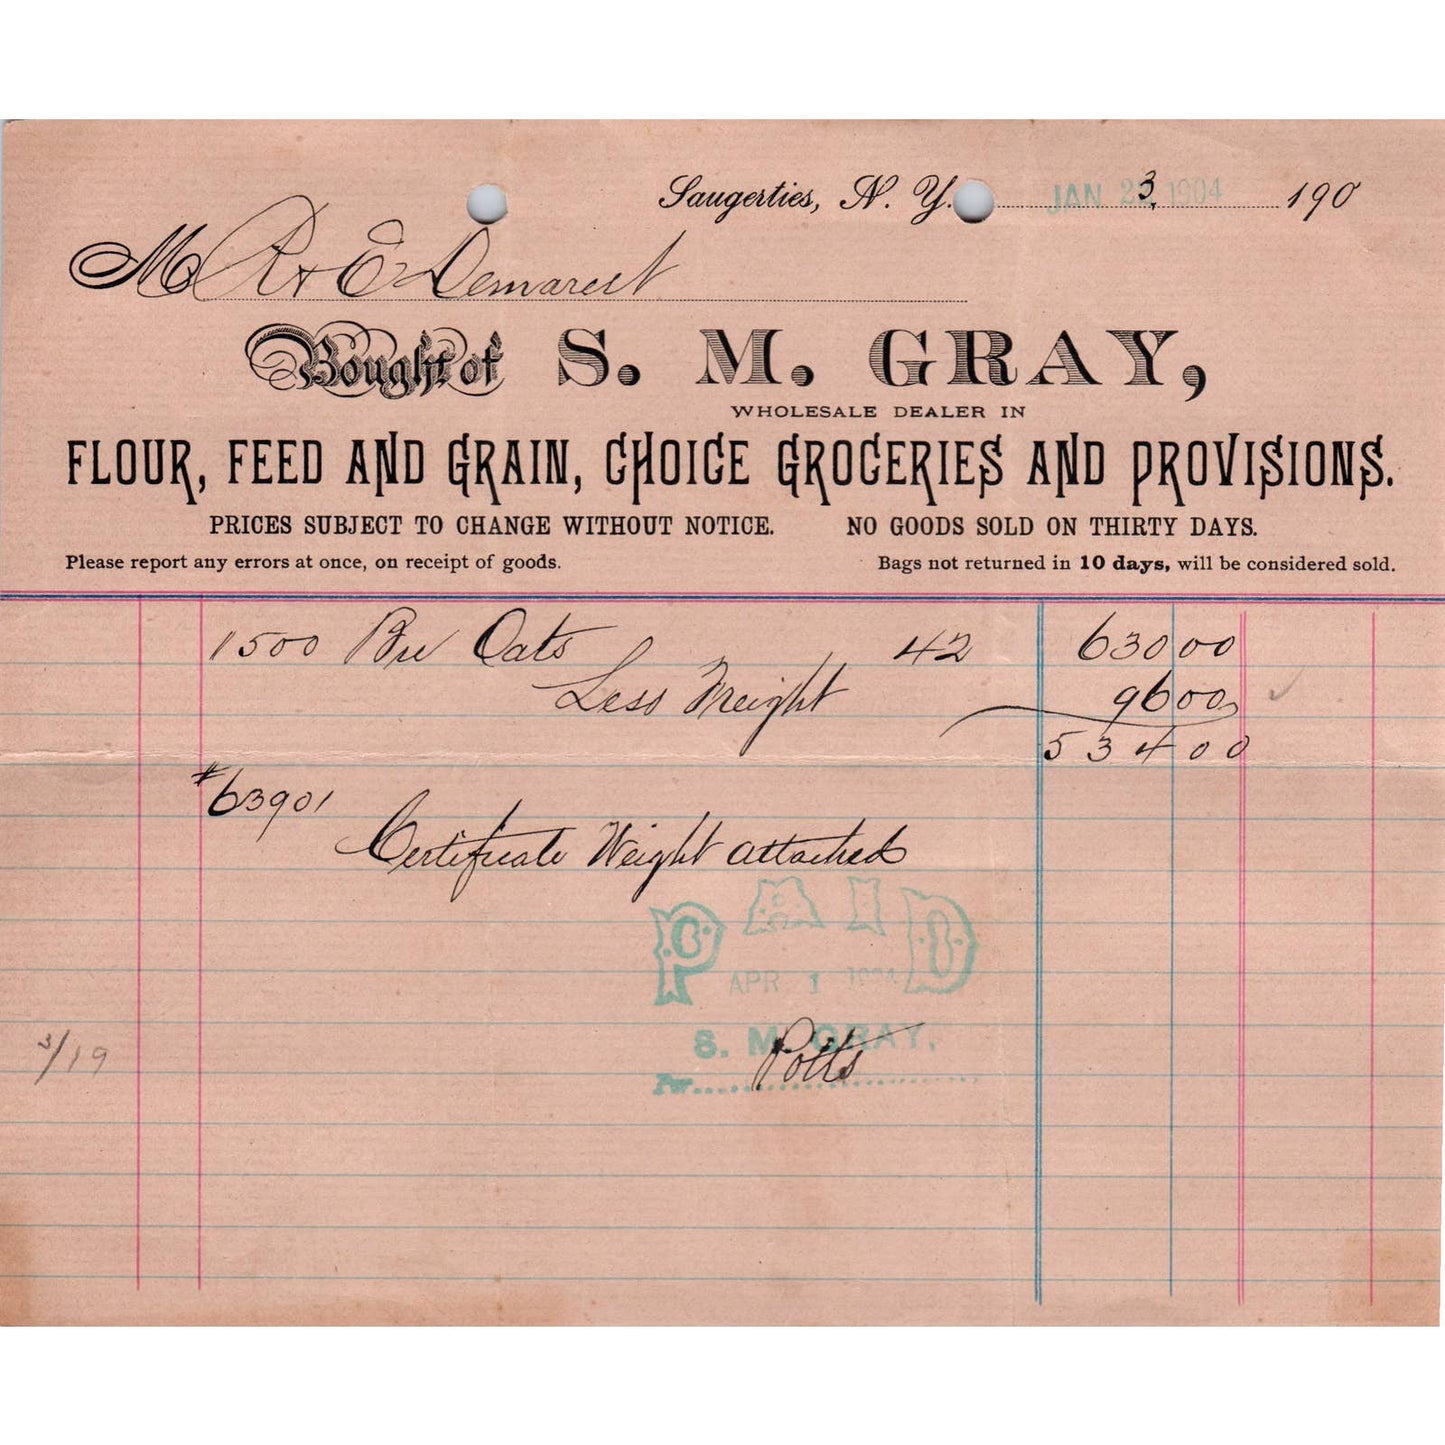 Saugerties, N. Y. JAN 23, 1904 190
M R & E Demarest
Bought of S. M. GRAY,
WHOLESALE DEALER IN
FLOUR, FEED AND GRAIN, CHOICE GROCERIES AND PROVISIONS.
PRICES SUBJECT TO CHANGE WITHOUT NOTICE. NO GOODS SOLD ON THIRTY DAYS.
Please report any errors at once, on receipt of goods. Bags not returned in 10 days, will be considered sold.
1500 Bu Oats 42 630 00
Less Freight 96 00
534 00
#63901
Certificate Weight attached
PAID
APR 1 1904
S. M. GRAY,
3/19
Per Potts